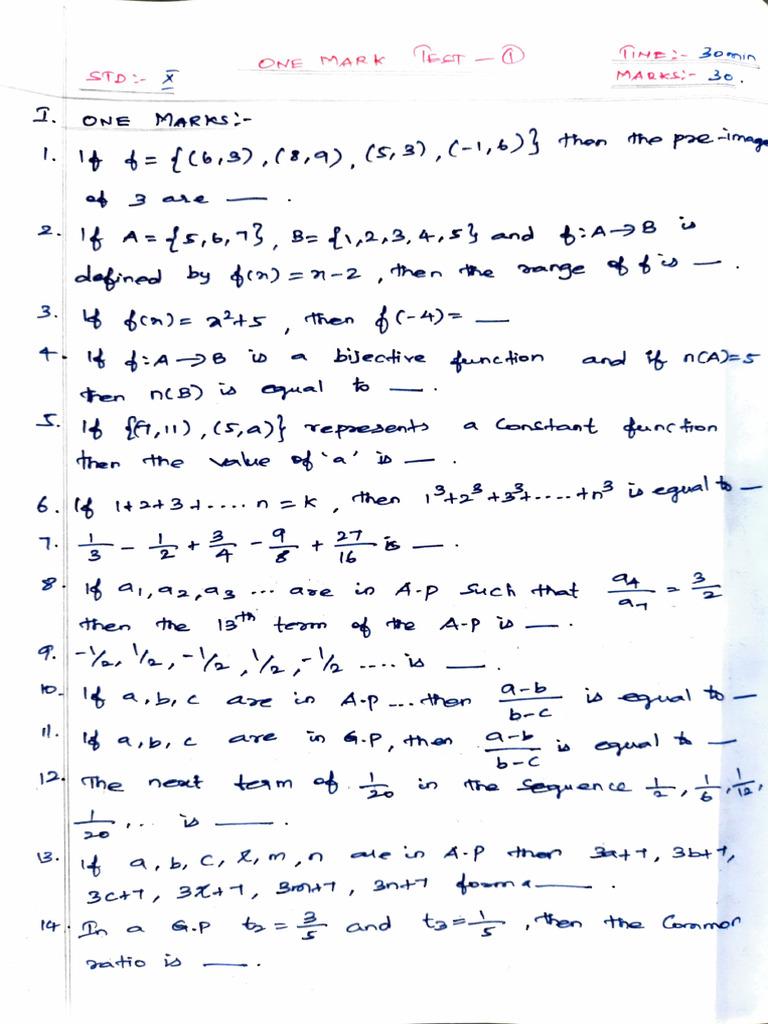 ONE MARK TEST - ①
TIME:- 30min
STD:- X
MARKS:- 30.
I. ONE MARKS:-
1. If f = {(6,3), (8,9), (5,3), (-1,6)} then the pre-image
of 3 are __.
2. If A = {5,6,7}, B = {1,2,3,4,5} and f:A→B is
defined by f(x) = x-2, then the range of f is __.
3. If f(x) = x²+5, then f(-4) = __
4. If f:A→B is a bijective function and if n(A)=5
then n(B) is equal to __.
5. If {(7,11), (5,a)} represents a constant function
then the value of 'a' is __.
6. If 1+2+3+.....n = k, then 1³+2³+3³+.....+n³ is equal to __
7. 1/3 - 1/2 + 3/4 - 9/8 + 27/16 is __.
8. If a₁, a₂, a₃ ... are in A.P such that a₄/a₇ = 3/2
then the 13th term of the A.P is __.
9. -1/2, 1/2, -1/2, 1/2, -1/2 .... is __.
10. If a, b, c are in A.P ... then a-b/b-c is equal to __
11. If a, b, c are in G.P, then a-b/b-c is equal to __
12. The next term of 1/20 in the sequence 1/2, 1/6, 1/12,
1/20, .. is __.
13. If a, b, c, l, m, n are in A.P then 3a+7, 3b+7,
3c+7, 3l+7, 3m+7, 3n+7 form a __.
14. In a G.P t₂ = 3/5 and t₃ = 1/5, then the common
ratio is __.